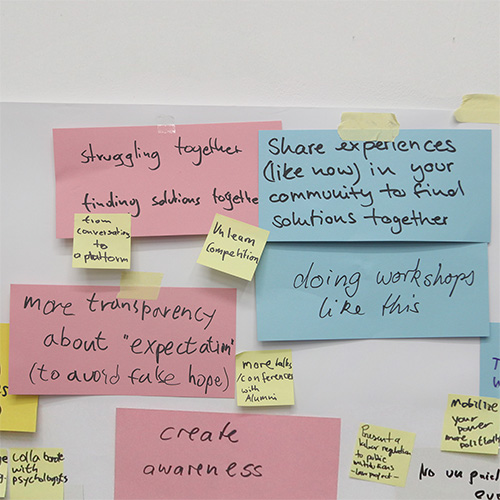 struggling together
finding solutions together
Share experiences
(like now) in your
community to find
solutions together
from
conversation
to
a platform
Unlearn
Competition
doing workshops
like this
more transparency
about "expectation"
(to avoid fake hope)
more talks
/conferences
with
Alumni
create
awareness
Mobilize
your
power
more politically
Present a
labor regulation
to public
institutions
colla borate
with
psychologists
No un paid